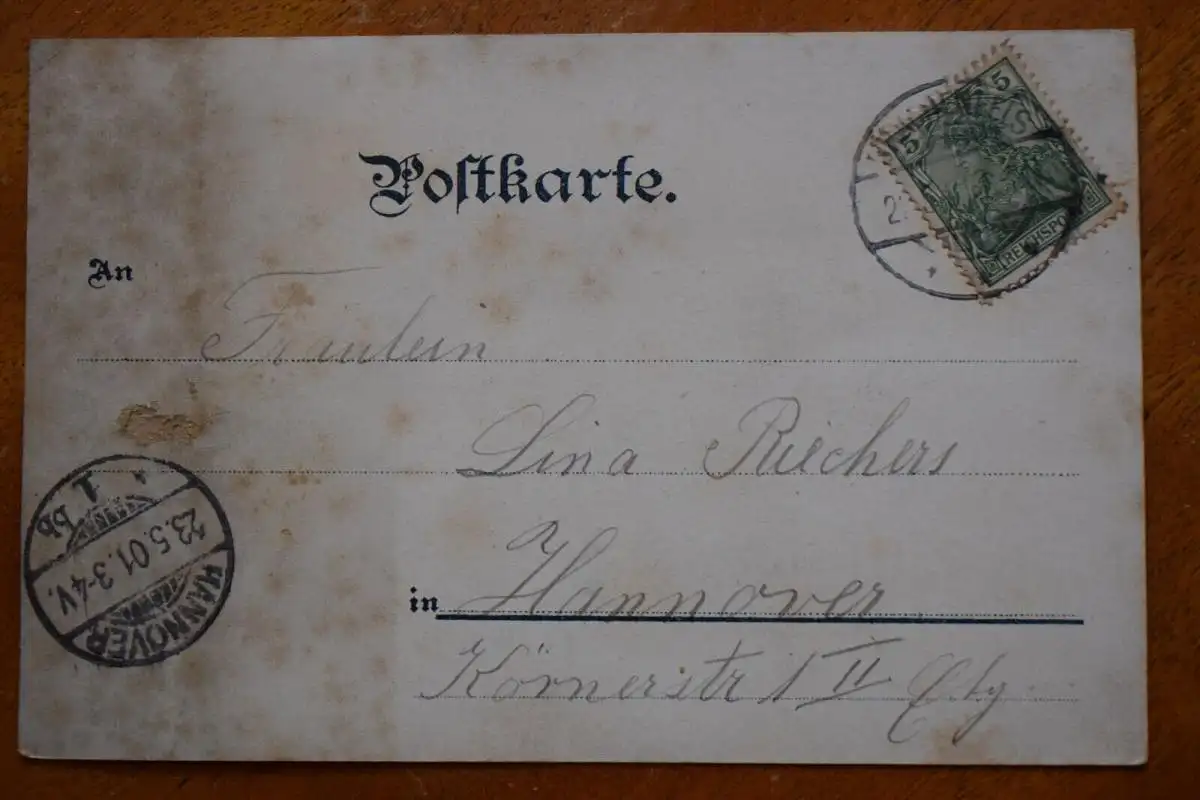 Postkarte.
5 5
REICHSPO
2
An
Fräulein
Lina Riechers
in Hannover
Körnerstr 1 II Etg
HANNOVER
23.5.01.3-4V.
1 bb